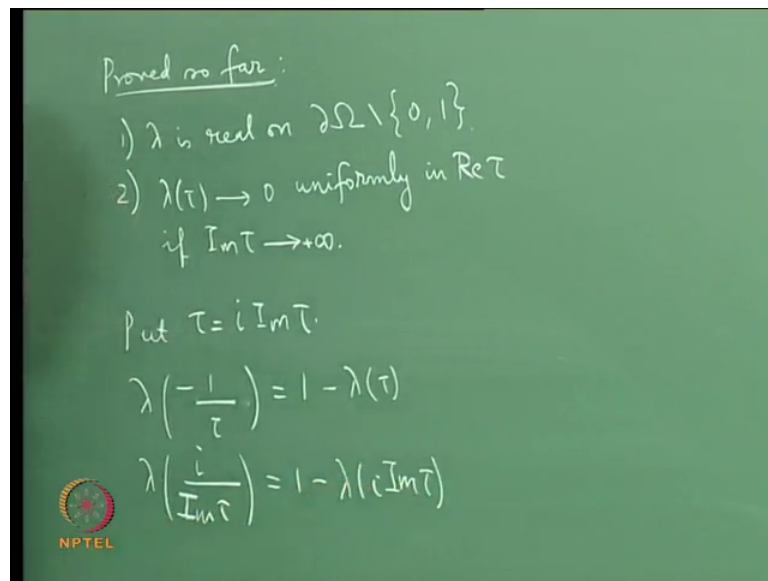 Proved so far:
1) λ is real on ∂Ω \ {0, 1}.
2) λ(τ) → 0 uniformly in Re τ
if Im τ → +∞.
Put τ = i Im τ.
λ(-1/τ) = 1 - λ(τ)
λ(i/Im τ) = 1 - λ(i Im τ)
NPTEL